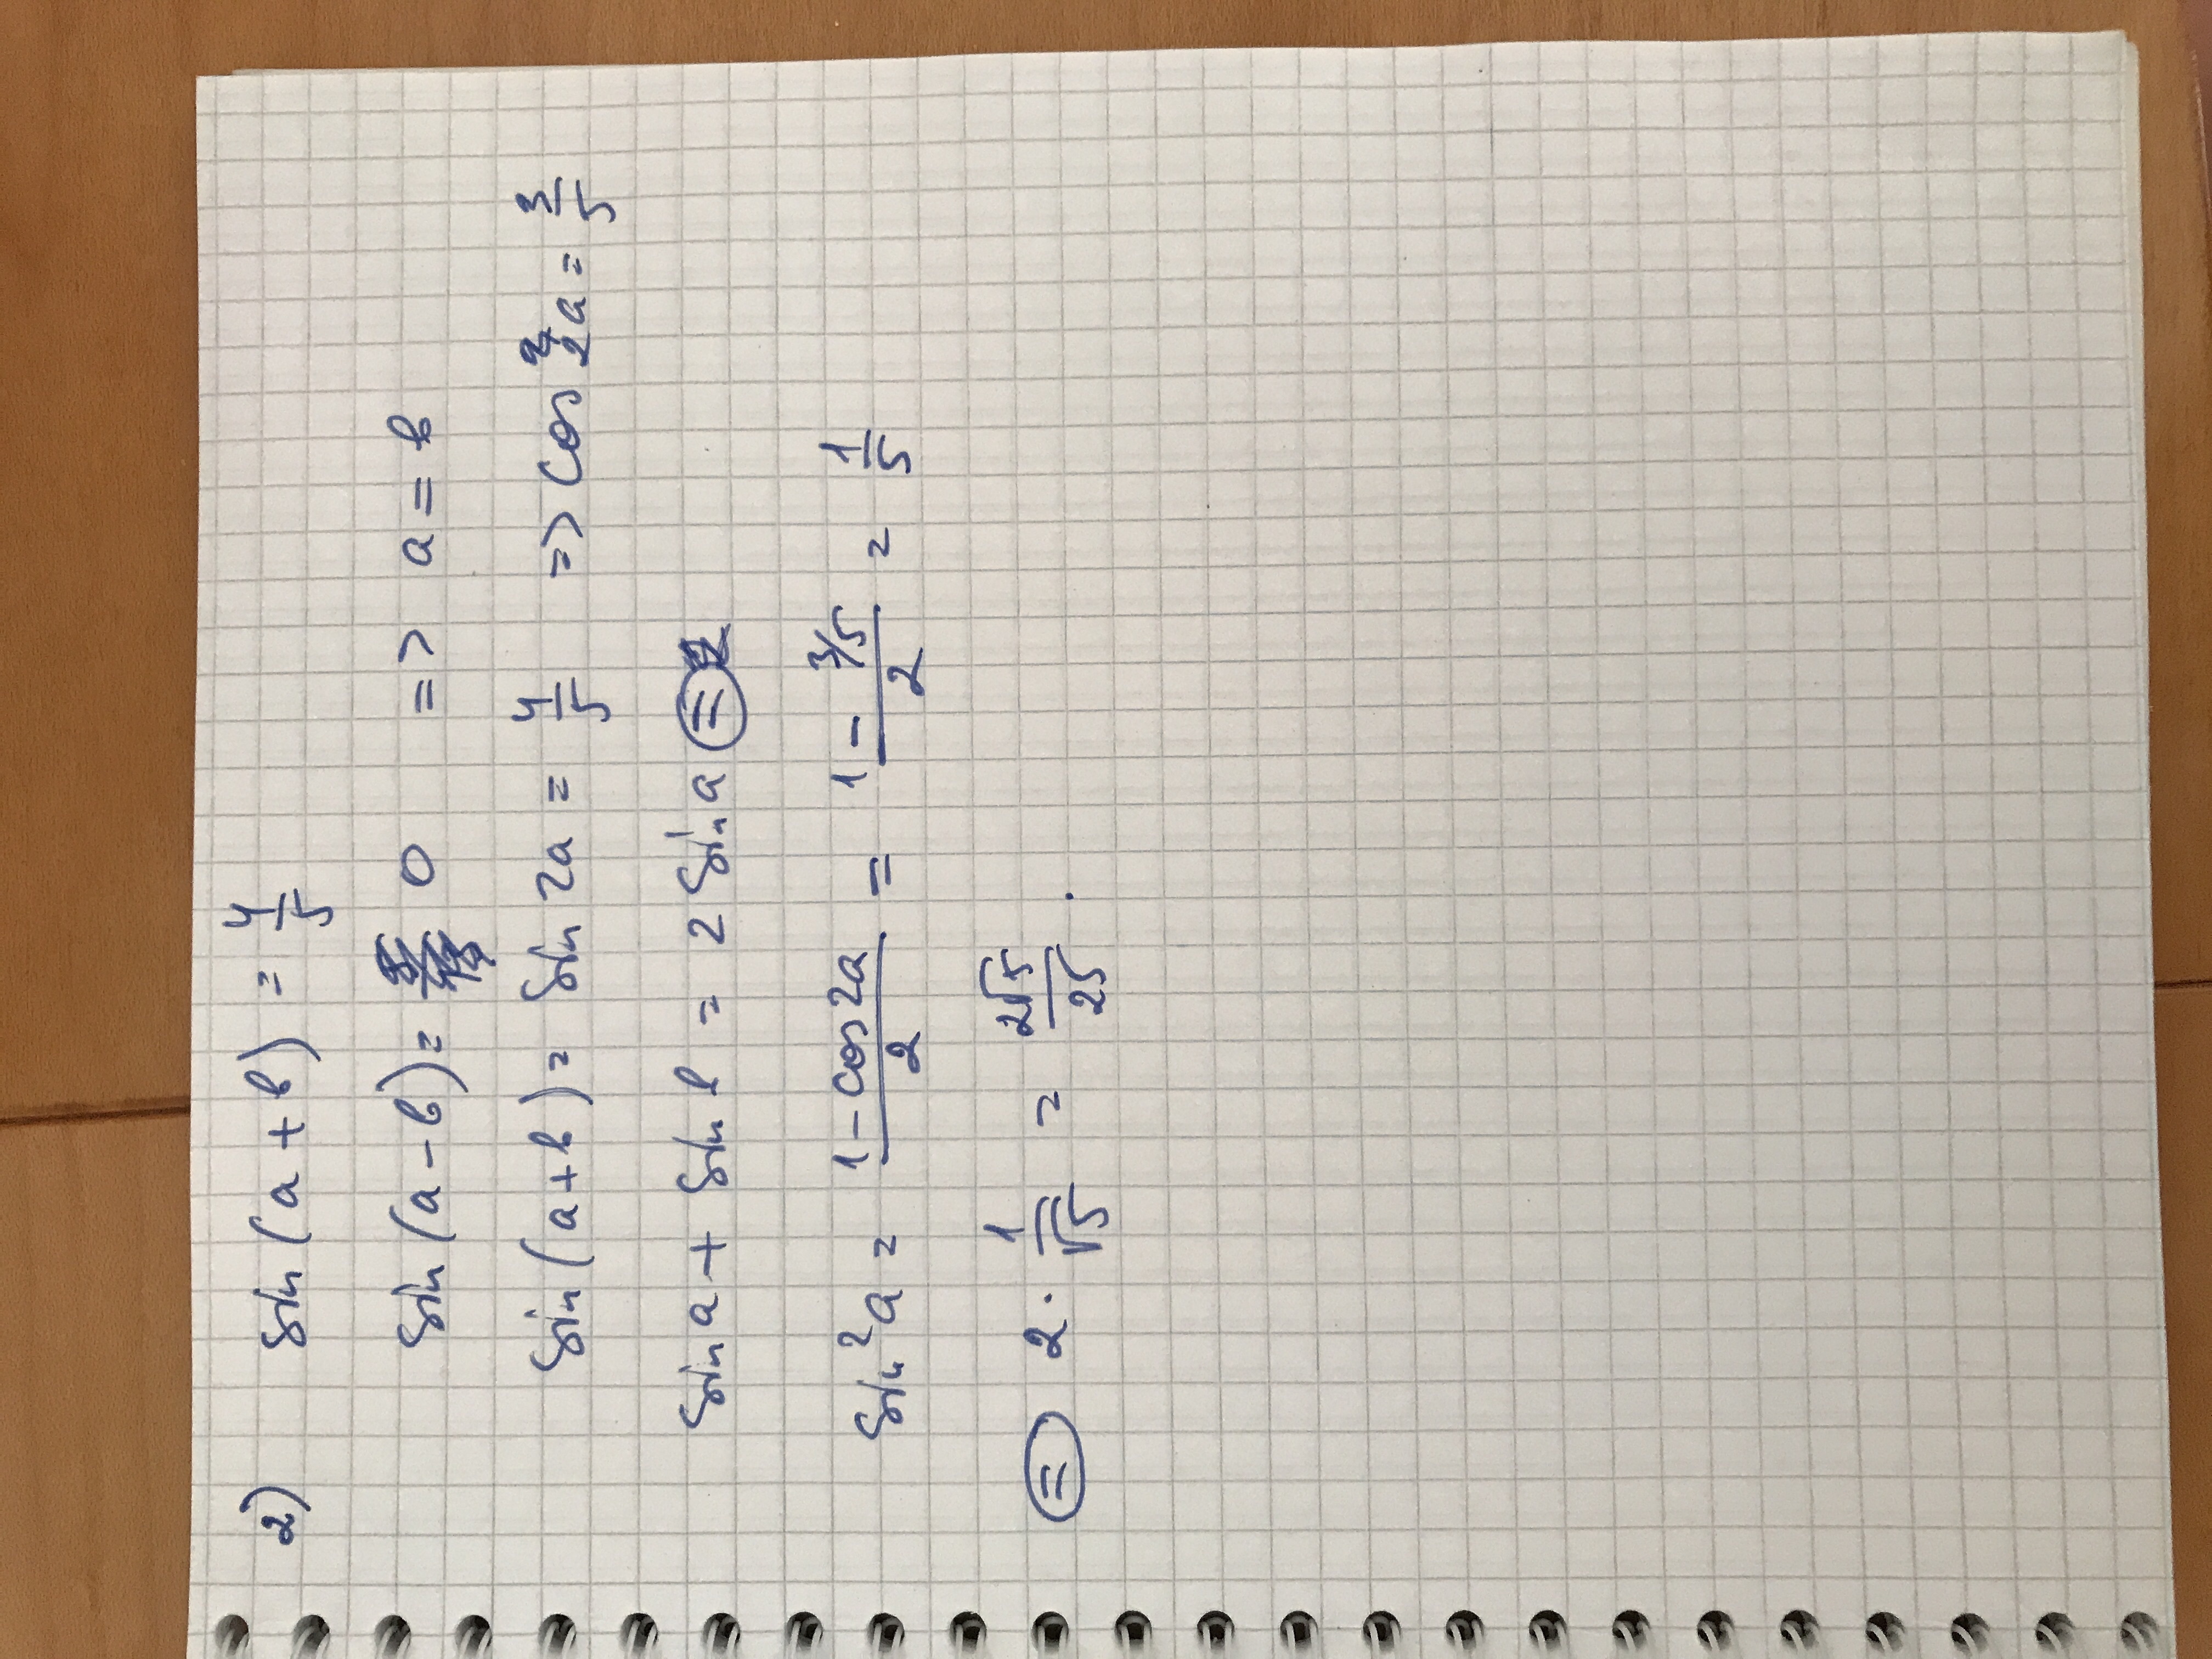 2) sin(a+b) = 4/5
sin(a-b) = 0 => a = b
sin(a+b) = sin 2a = 4/5 => cos 2a = 3/5
sin a + sin b = 2 sin a =
sin²a = (1 - cos 2a)/2 = (1 - 3/5)/2 = 1/5
= 2 · 1/√5 = 2√5/25 .